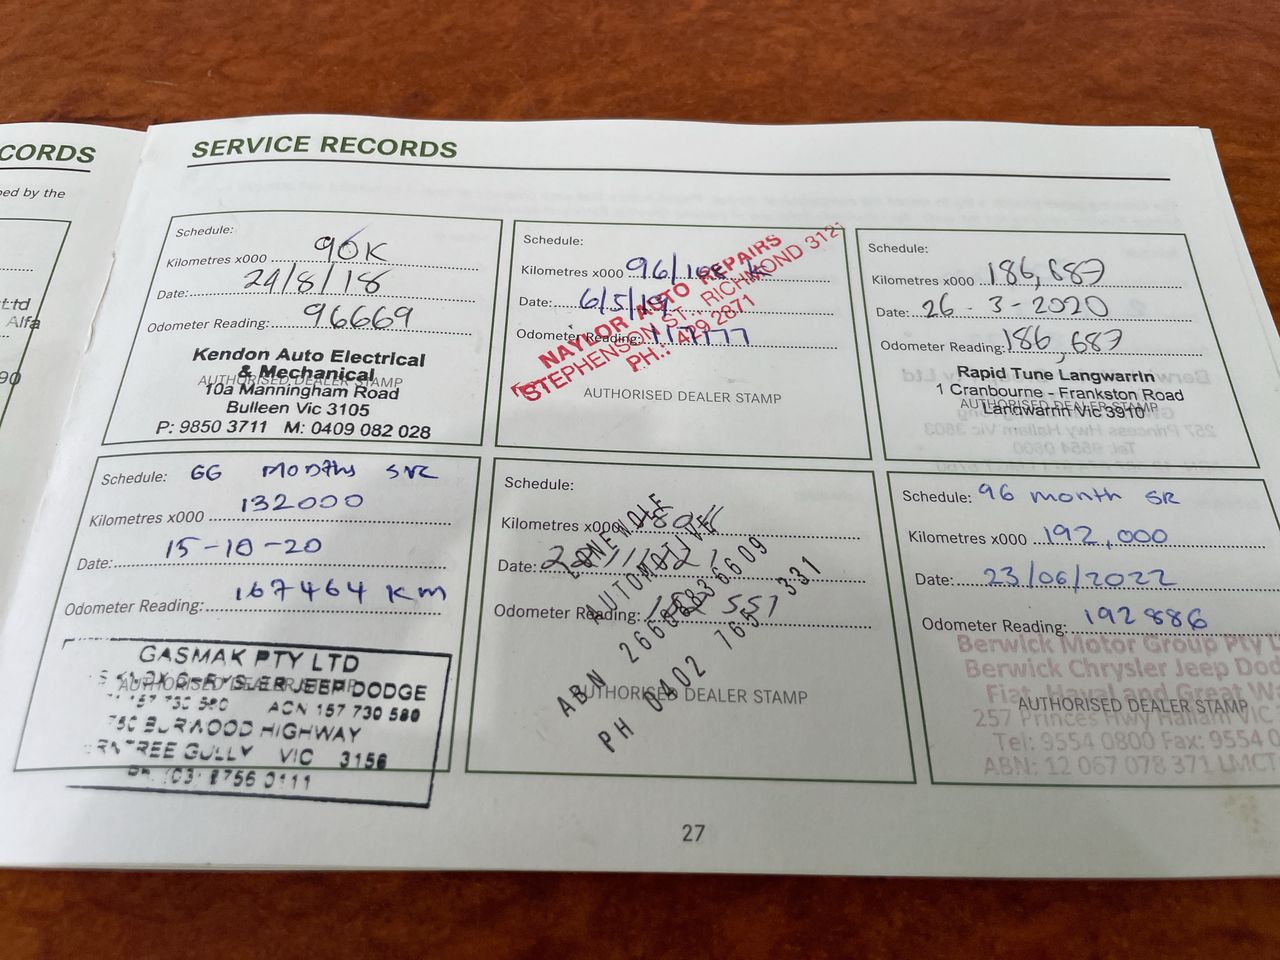 CORDS
ped by the
Alfa
90
SERVICE RECORDS
Schedule:
Kilometres x000 90K
Date: 24/8/18
Odometer Reading: 96669
Kendon Auto Electrical
& Mechanical
AUTHORISED DEALER STAMP
10a Manningham Road
Bulleen Vic 3105
P: 9850 3711 M: 0409 082 028
Schedule:
Kilometres x000 96/ K
Date: 6/5/19
Odometer Reading: 117177
NAYLOR AUTO REPAIRS
STEPHENSON ST. RICHMOND 3121
PH.: 429 2871
AUTHORISED DEALER STAMP
Schedule:
Kilometres x000 186,687
Date: 26-3-2020
Odometer Reading: 186,687
Rapid Tune Langwarrin
1 Cranbourne - Frankston Road
AUTHORISED DEALER STAMP
Langwarrin Vic 3910
Schedule: 66 MONTHS SVR
Kilometres x000 132000
Date: 15-10-20
Odometer Reading: 167464 KM
GASMAK PTY LTD
AUTHORISED DEALER STAMP
JEEP DODGE
ACN 157 730 580
750 BURWOOD HIGHWAY
TREE GULLY VIC 3156
PH. (03) 8756 0111
Schedule:
Kilometres x000 180K
Date:
Odometer Reading: 557
LONEWOLF
AUTOMOTIVE
ABN 26608836609
PH 0402 765 331
AUTHORISED DEALER STAMP
Schedule: 96 month SR
Kilometres x000 192,000
Date: 23/06/2022
Odometer Reading: 192886
Berwick Motor Group Pty L
Berwick Chrysler Jeep Dod
Fiat, Haval and Great Wa
AUTHORISED DEALER STAMP
257 Princes Hwy Hallam VIC
Tel: 9554 0800 Fax: 9554 0
ABN: 12 067 078 371 LMCT
27